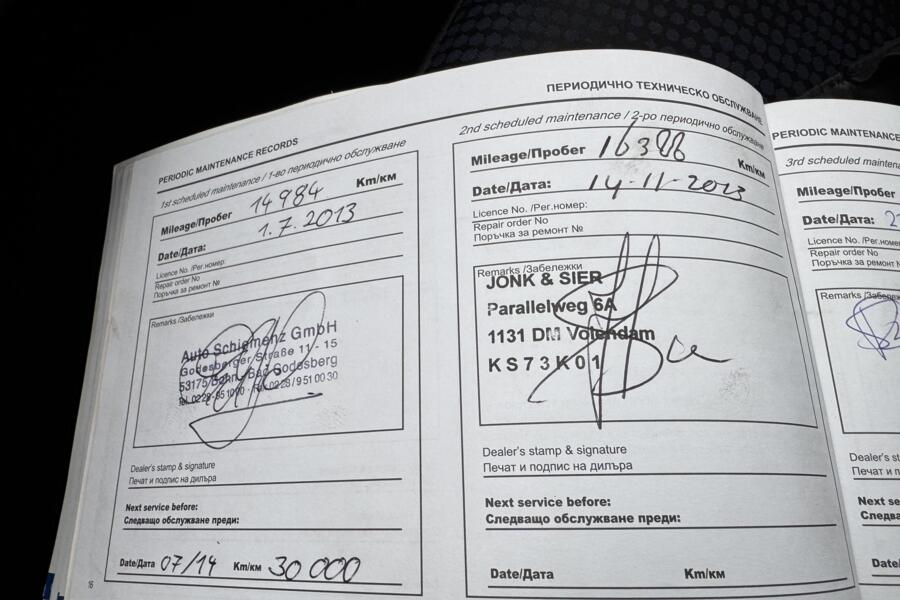 PERIODIC MAINTENANCE RECORDS
1st scheduled maintenance / 1-во периодично обслужване
Mileage/Пробег 14984 Km/км
Date/Дата: 1.7.2013
Licence No. /Рег.номер:
Repair order No
Поръчка за ремонт №
Remarks /Забележки
Auto Schiemenz GmbH
Godesberger Straße 11 - 15
53175 Bonn - Bad Godesberg
Dealer's stamp & signature
Печат и подпис на дилъра
Next service before:
Следващо обслужване преди:
Date/Дата 07/14 Km/км 30 000
16
ПЕРИОДИЧНО ТЕХНИЧЕСКО ОБСЛУЖВАНЕ
2nd scheduled maintenance / 2-ро периодично обслужване
Mileage/Пробег 16388 Km/км
Date/Дата: 14-11-2013
Licence No. /Рег.номер:
Repair order No
Поръчка за ремонт №
Remarks /Забележки
JONK & SIER
Parallelweg 6A
1131 DM Volendam
KS73K01
Dealer's stamp & signature
Печат и подпис на дилъра
Next service before:
Следващо обслужване преди:
Date/Дата Km/км
PERIODIC MAINTENANCE
3rd scheduled
Mileage/Пробег
Date/Дата:
Licence No. /Рег.
Repair order No
Поръчка за ремонт
Remarks
Dealer's
Печат и
Next